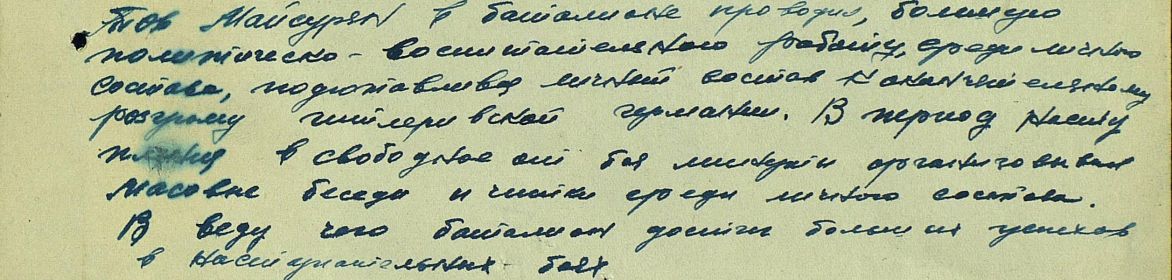 Тов Майсурян в баталионе проводил, большую
политическо-воспитательного работу, среди личного
состава, подготавливая личный состав к окончательному
розгрому гитлеровской германии. В период наступ
пления в свободное от боя минути организовывал
масовые беседи и читки среди личного состава.
В веду чего баталион достиг больших успехов
в наступательных боях